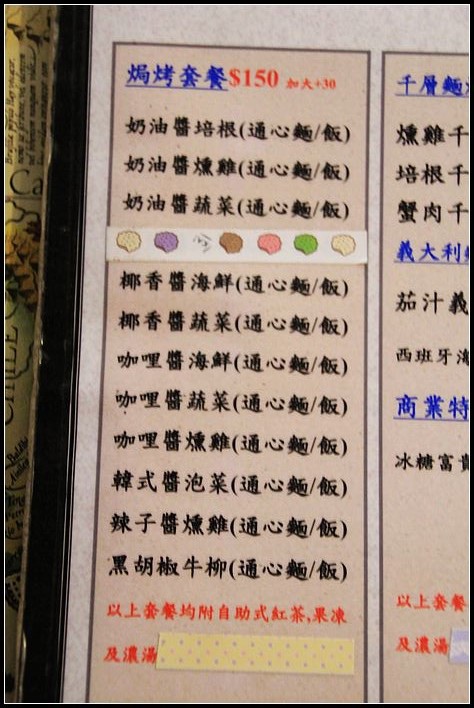 焗烤套餐$150 加大+30
奶油醬培根(通心麵/飯)
奶油醬燻雞(通心麵/飯)
奶油醬蔬菜(通心麵/飯)
椰香醬海鮮(通心麵/飯)
椰香醬蔬菜(通心麵/飯)
咖哩醬海鮮(通心麵/飯)
咖哩醬蔬菜(通心麵/飯)
咖哩醬燻雞(通心麵/飯)
韓式醬泡菜(通心麵/飯)
辣子醬燻雞(通心麵/飯)
黑胡椒牛柳(通心麵/飯)
以上套餐均附自助式紅茶,果凍
及濃湯
千層麵
燻雞千
培根千
蟹肉千
義大利
茄汁義
西班牙海
商業特
冰糖富貴
以上套餐
及濃湯